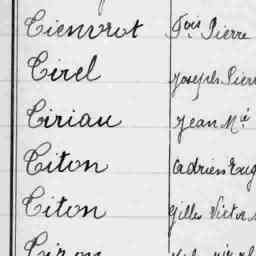 Tienvrot Fçois Pierre
Tirel Joseph Pierr
Tiriau Jean M.ie
Titon Adrien Eug
Titon Gilles Victor